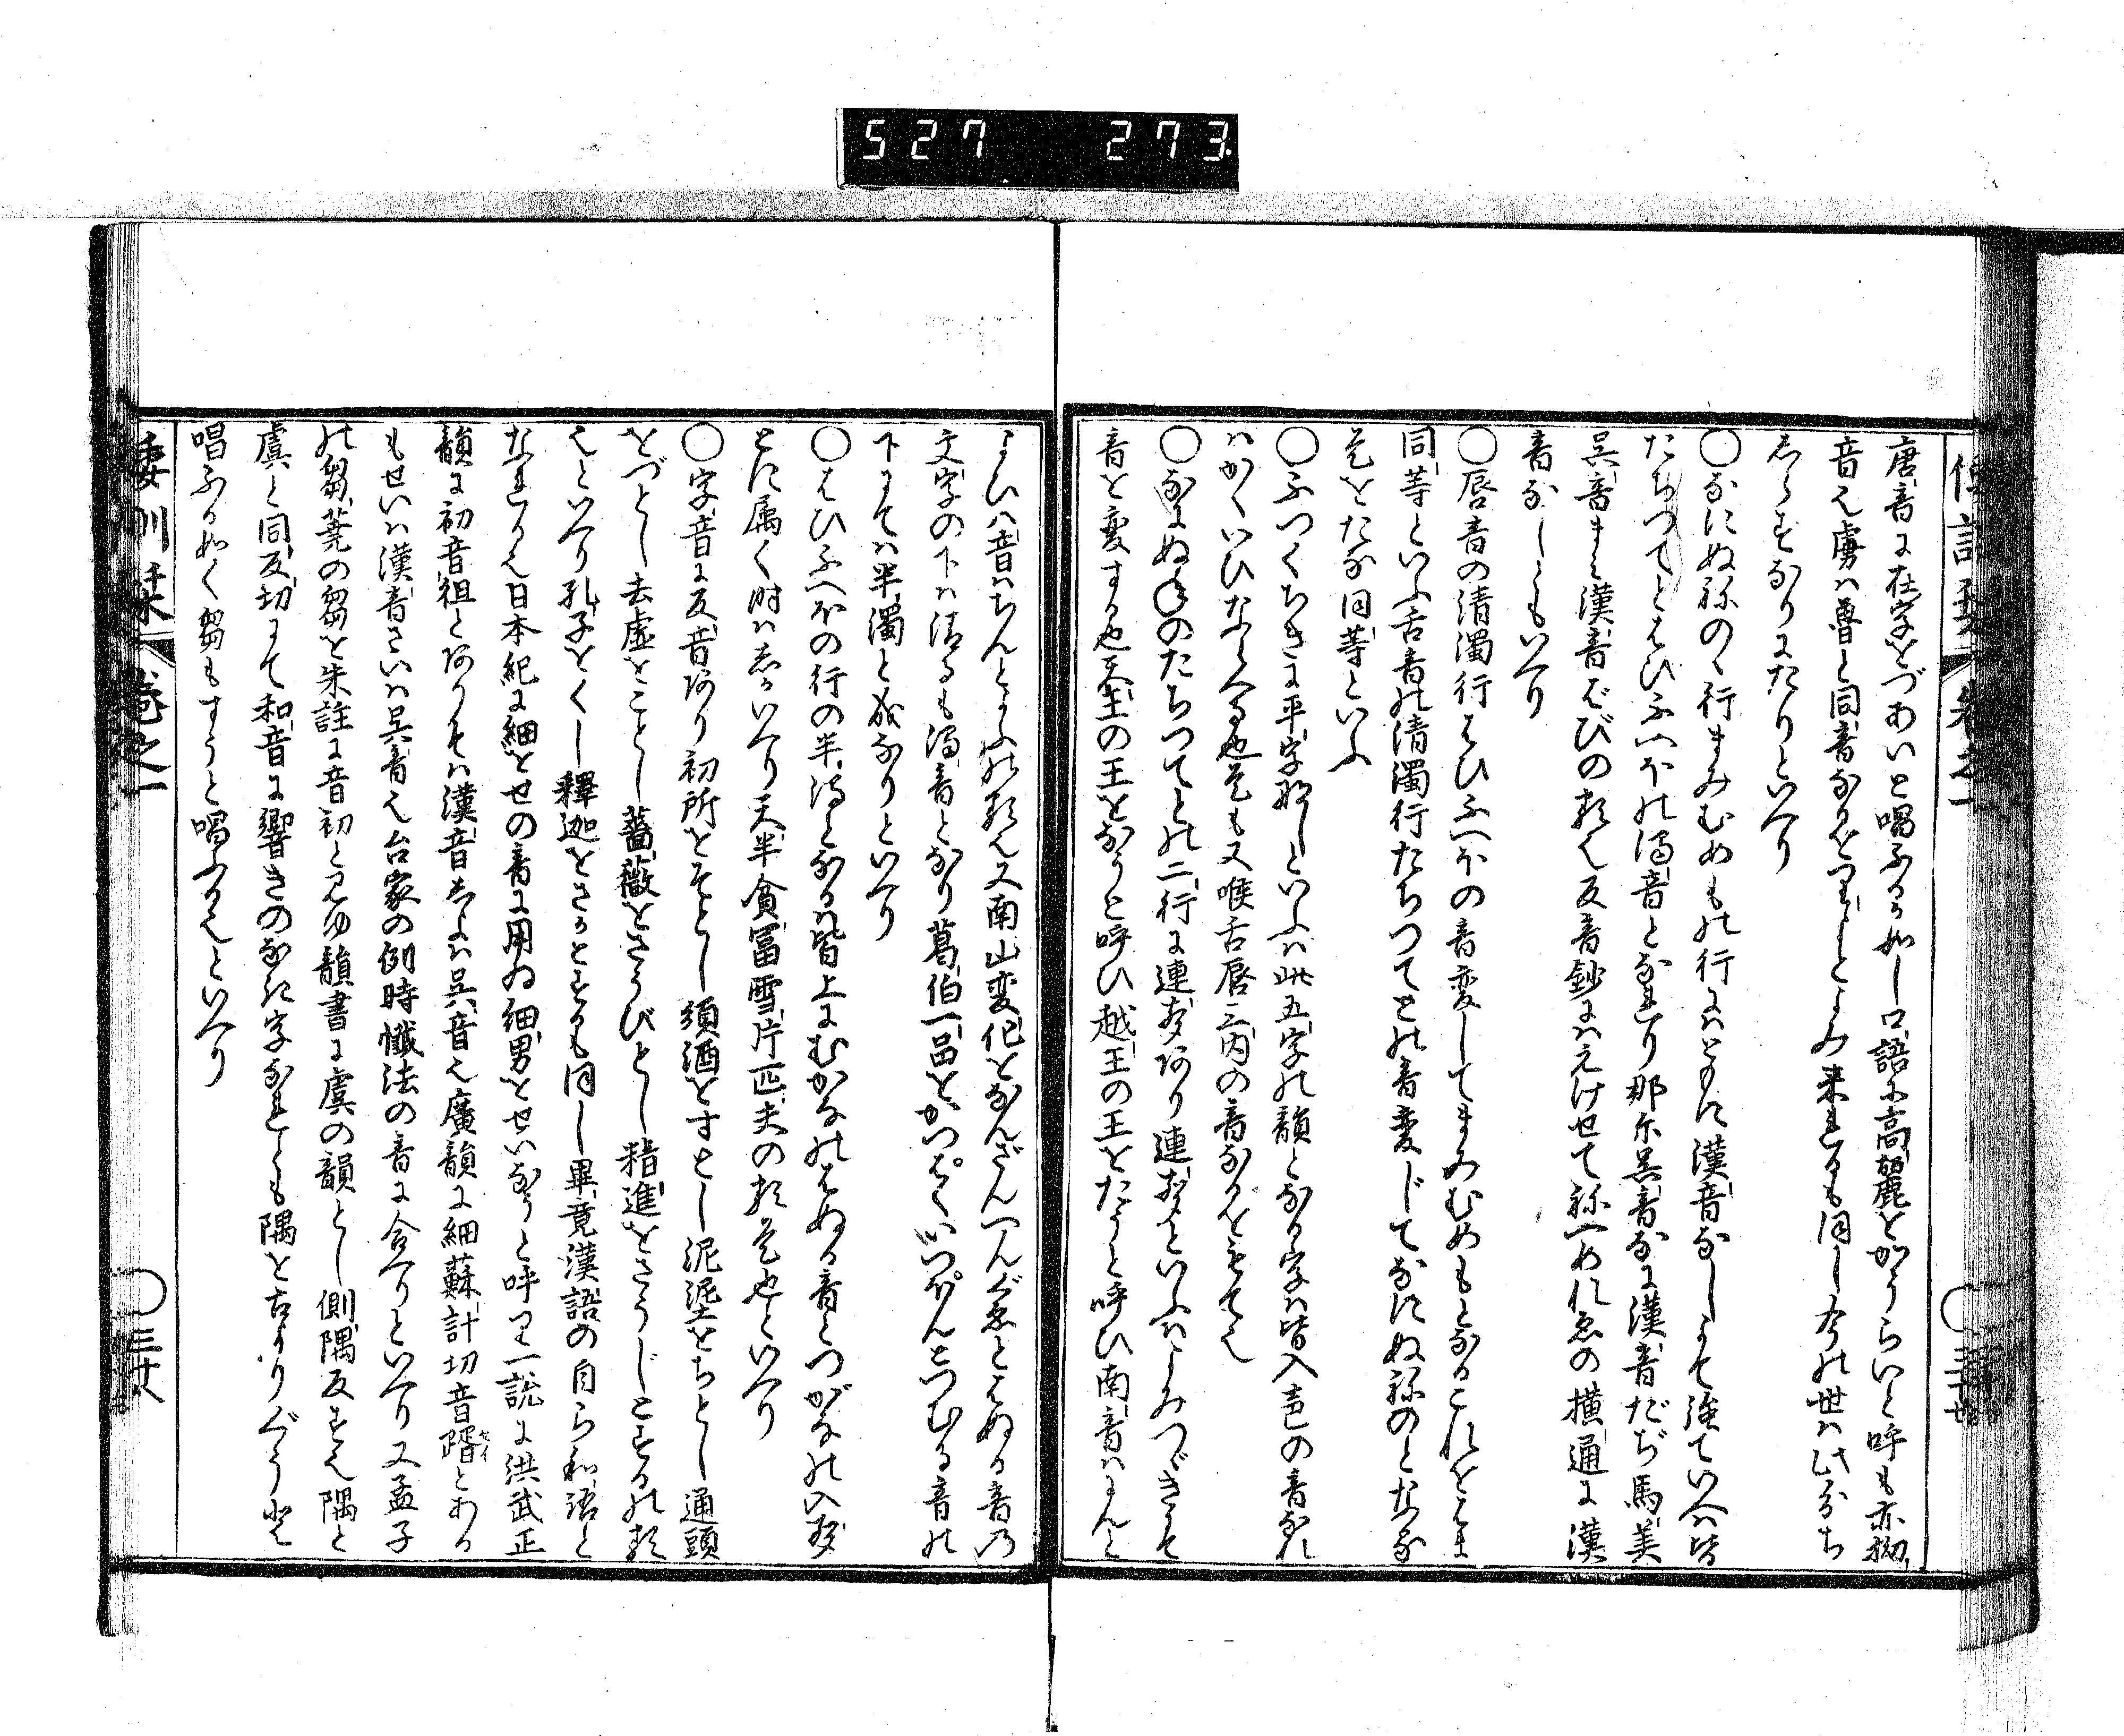 527 273.
唐音に在字をづあいと唱ふるか如し口語に高麗をかうらいと呼も亦拗
音也虜は魯と同音なるをつりよとよみ来れるも同し今の世は此分ち
しらすなりにたりといへり
○なにぬねのゝ行まみむめもの行にはともに漢音なしよて強ていへは皆
たちつてとはひふへほの濁音となれり那尓呉音なに漢音だぢ馬美
呉音まみ漢音ばびの類也反音鈔にはえけせてねへめれゑの横通に漢
音なしともいへり
○唇音の清濁行はひふへほの音変してまみむめもとなるこれをはま
同等といふ舌音の清濁行たちつてとの音変じてなにぬねのとなる
是をたな同等といふ
○ふつくちきに平字なしといふは此五字の韻となる字は皆入声の音なれ
はかくいひならへる也是も又喉舌唇三内の音なるをもて也
○なにぬねのたちつてとの二行に連声あり連声といふはよみつゞきにて
音を変する也天王の王をなうと呼ひ越王の王をたうと呼ひ南音はなんと
よひ八音はちんとよふの類也又南山変化をなんざんへんぐゑとはぬる音乃
文字の下は清るも濁音となり葛伯一品をかつぱくいつぽんとつむる音の
下にては半濁と成なりといへり
○はひふへほの行の半濁となるは皆上にむかなのはぬる音とつがなの入声
とに属く時はしかいへり天半貪冨雪片一匹夫の類是也といへり
○字音に反音あり初所をそとし須酒をすとし泥埿をちとし通頭
をづとし去虚をことし薔薇をさうびとし精進をさうじとするの類
也といへり孔子をくし釋迦をさかとするも同し畢竟漢語の自ら和語と
なれる也日本紀に細をせの音に用ゐ細男をせいなうと呼り一説に洪武正
韻に初音徂とありそは漢音しよは呉音也廣韻に細蘇計切音壻とある
もせいは漢音さいは呉音也台家の例時懺法の音に合へりといへり又孟子
の芻蕘の芻を朱註に音初と見ゆ韻書に虞の韻とし側隅反とす也隅と
虞と同反切にて和音に響きのなき字なれとも隅を古よりぐうと
唱ふる如く芻もすうと唱ふる也といへり
倭訓栞 巻之一 三十八